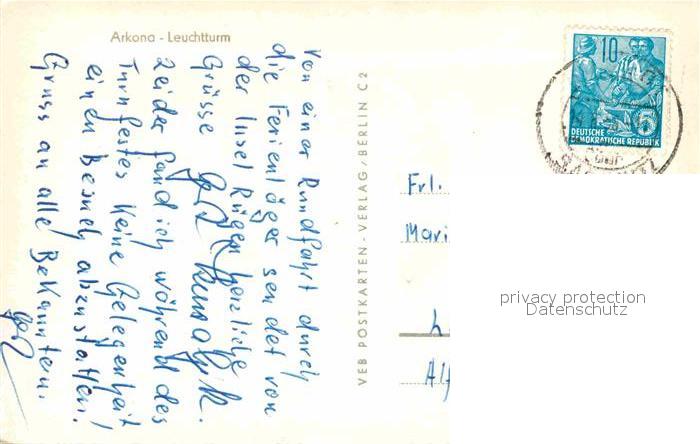 Arkona - Leuchtturm
Von einer Rundfahrt durch
die Ferienläger sendet von
der Insel Rügen herzliche
Grüsse
Leider fand ich während des
Turnfestes keine Gelegenheit
einen Besuch abzustatten!
Gruss an alle Bekannten.
VEB POSTKARTEN-VERLAG/BERLIN C 2
10
DEUTSCHE
DEMOKRATISCHE REPUBLIK
5
Frl.
Mari
Alf
privacy protection
Datenschutz